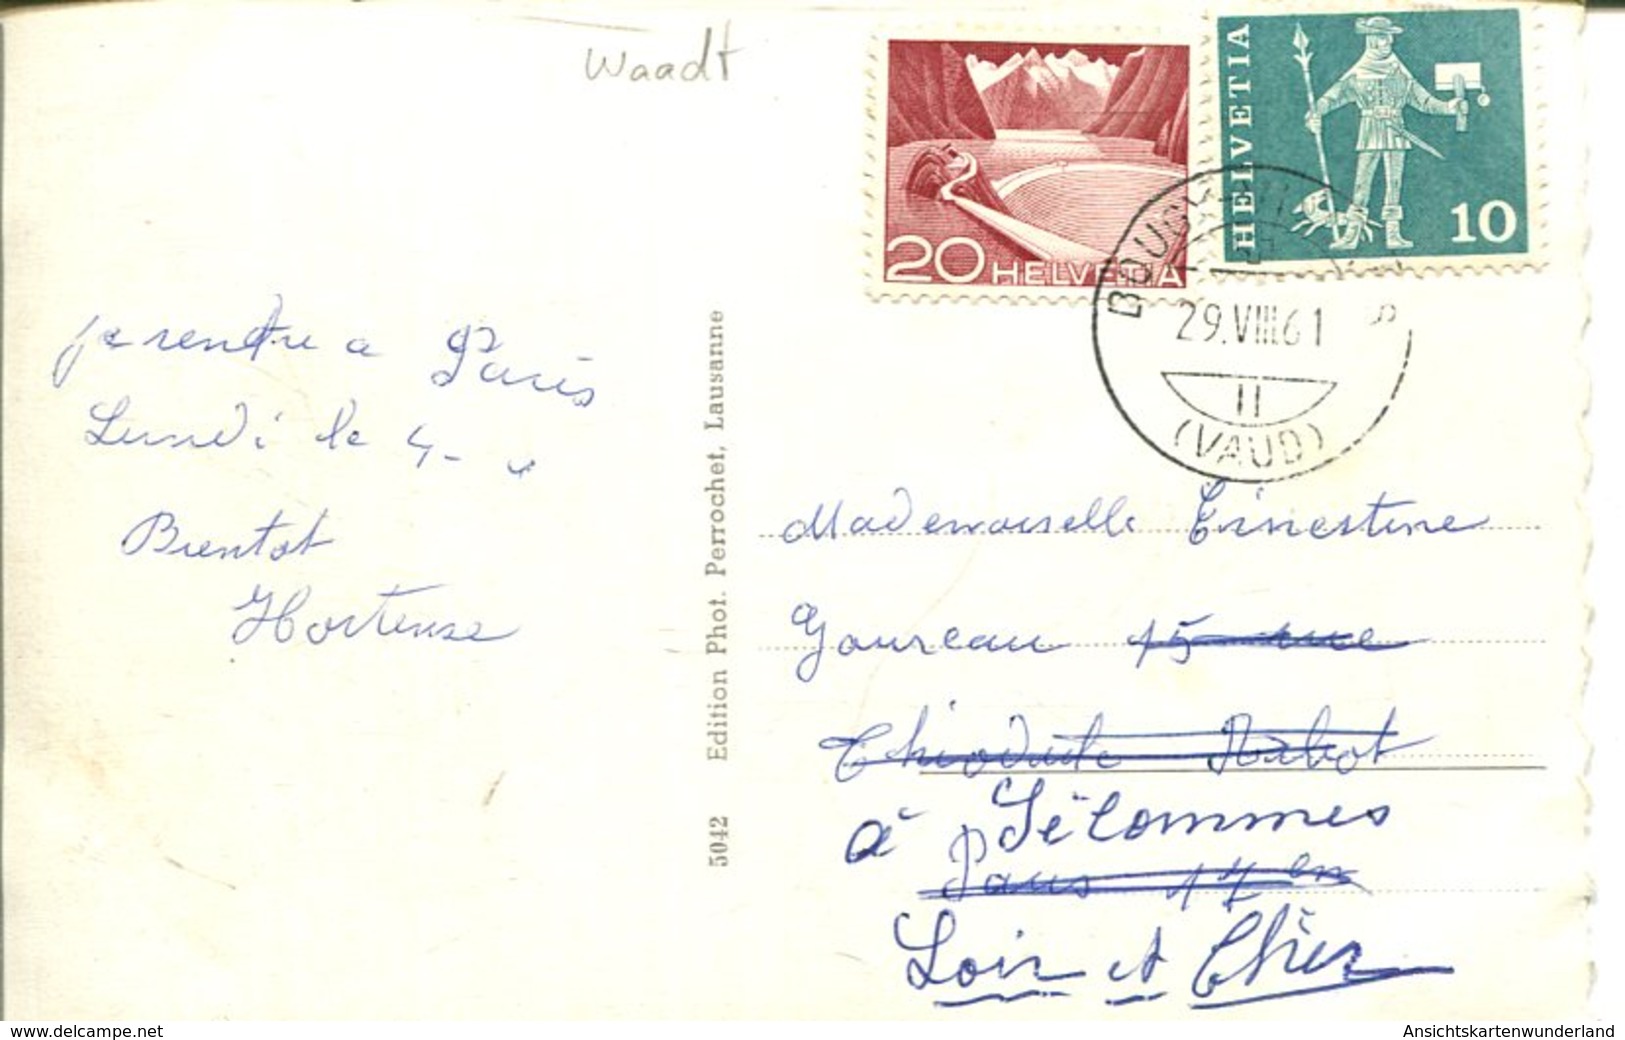 Waadt
20 HELVETIA
HELVETIA
10
29.VIII.61
11
(VAUD)
je rendre a Paris
Lundi le 4 - a
Bientot
Hortense
5042 Edition Phot. Perrochet, Lausanne
Mademoiselle Ernestine
Goureau 15 rue
Thiodule Ribot
à Sélommes
Paris 17 en
Loir et Cher
www.delcampe.net
Ansichtskartenwunderland